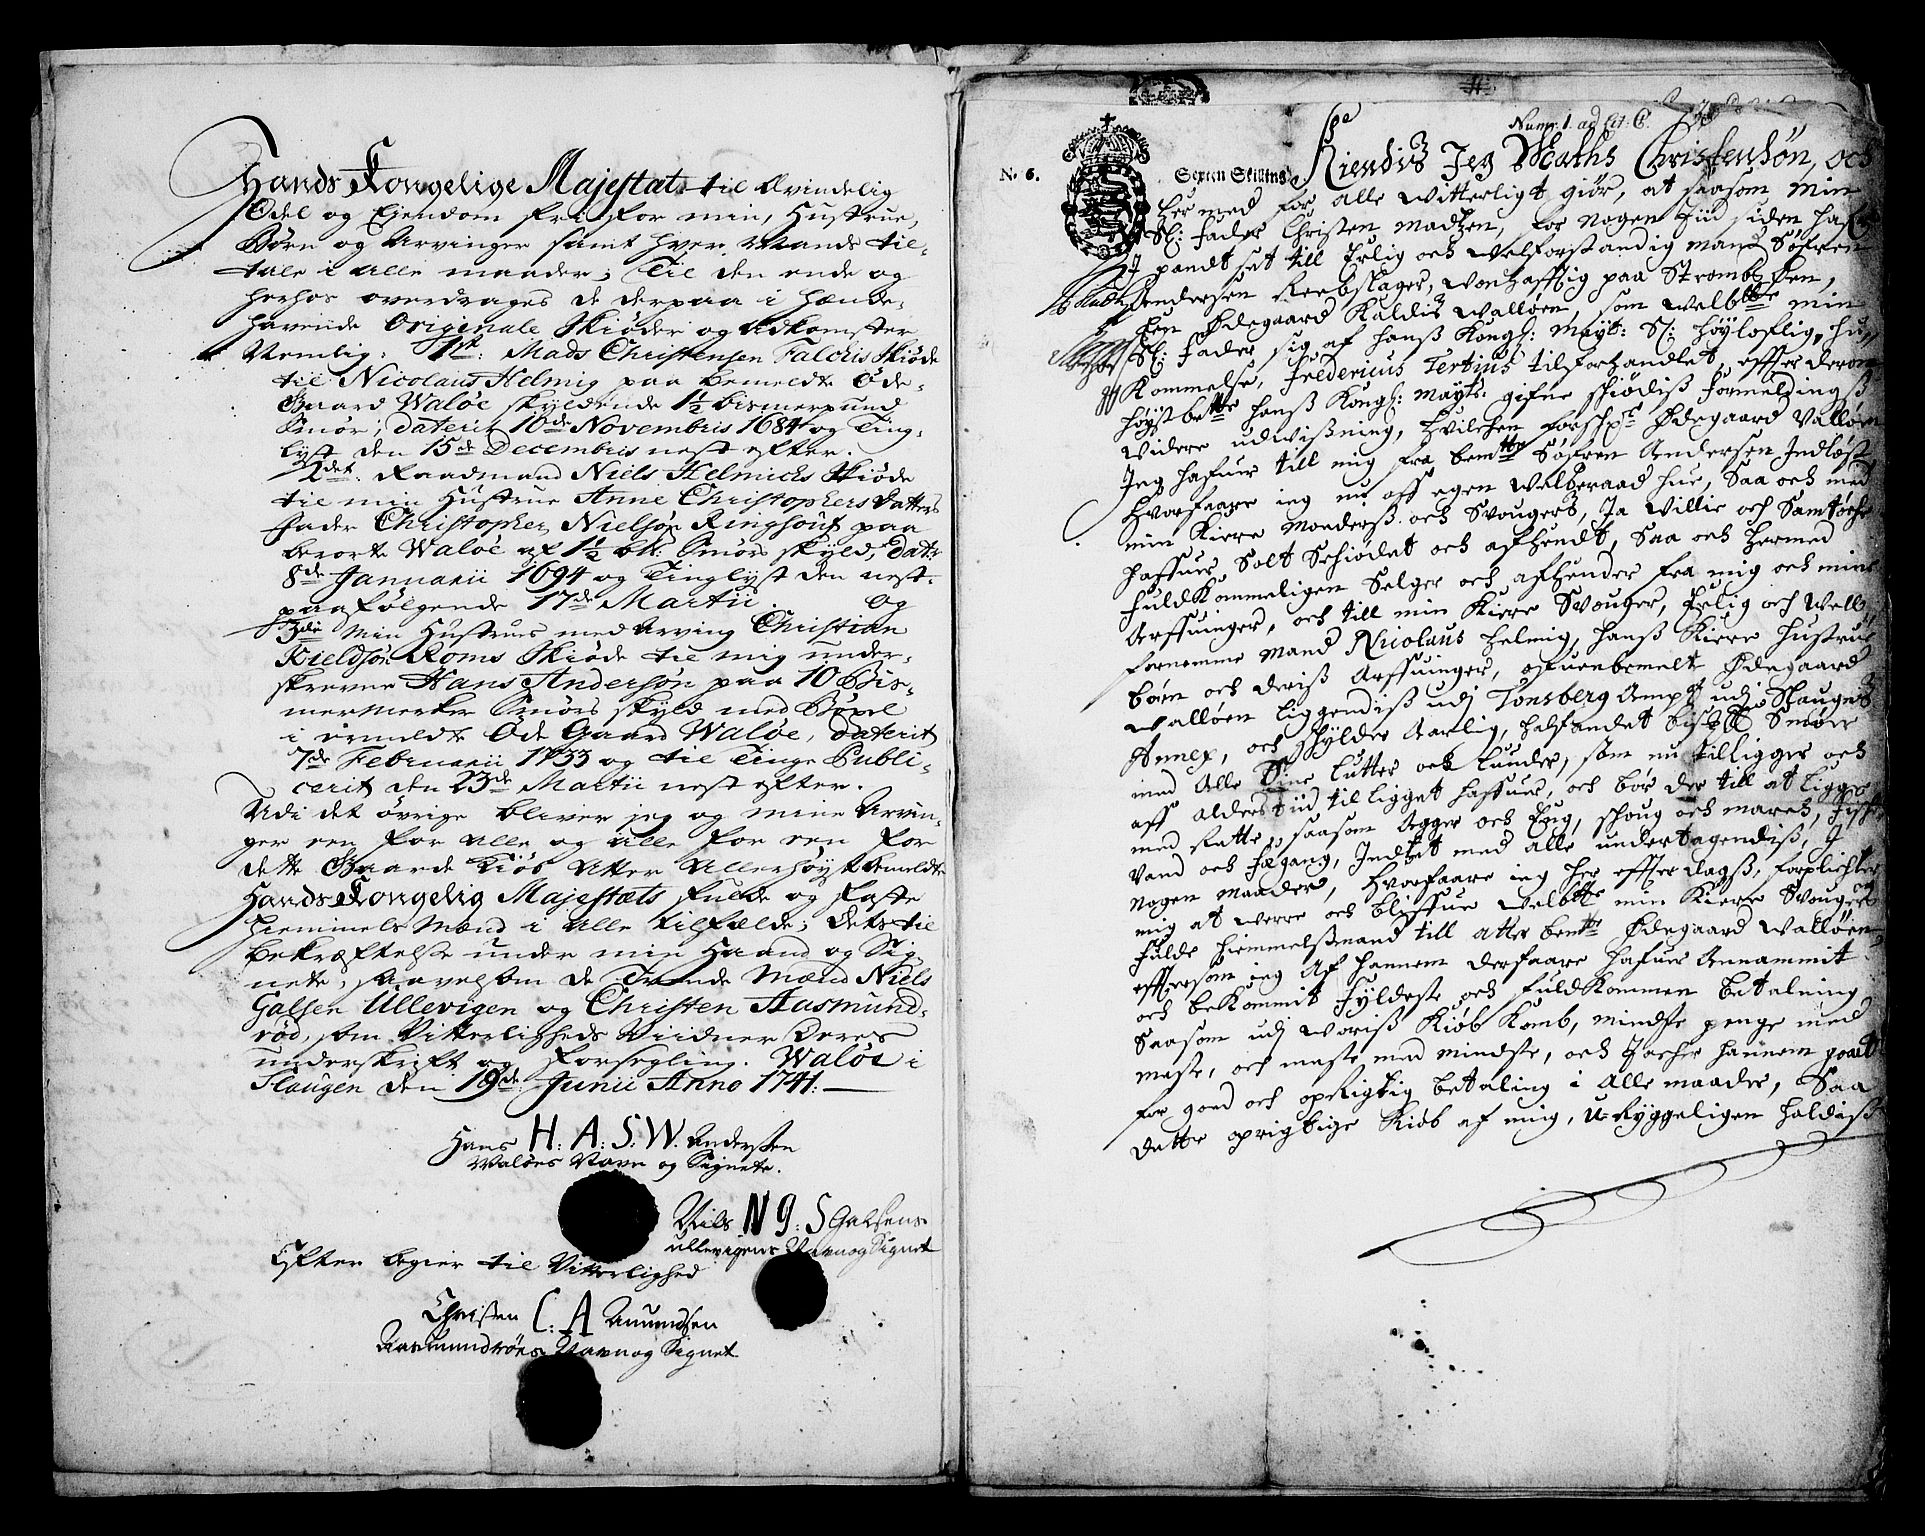 Hands Kongelige Majestæts til Ævindelig
Odel og Ejendom fri for min, Hustrue,
Børn og Arvinger samt hver Mands til-
tale i alle maader; Til den ende og
herhos overdrages de derpaa i hænde-
havende Originale Skiøder og Adkomster
Nemlig: 1st: Mads Christensen Falcks Skiøde
til Nicolaus Helmig paa bemeldte Øde-
Gaard Waløe skyldende 1½ bismerpund
Smør, daterit 10de Novembris 1684 og Ting-
lyst den 15de Decembris nest efter.
2det. Raadmand Niels Helmichs Skiøde
til min Hustrue Anne Christophers datters
Fader Christopher Nielsøn Ringshouf paa
berørte Waløe af 1½ bp: Smørs skyld, dat:
8de Januarii 1694 og Tinglyst den nest-
paafølgende 17de Martii og
3die Min Hustrues med Arving Christian
Kieldsøn Roms Skiøde til mig under-
skrevne Hans Andersøn paa 10 Bis-
mermerker Smørs skyld med Bøxel
i ermeldte Øde Gaard Waløe, daterit
7de Februarii 1733 og til Tinge Publi-
cerit den 23de Martii nest efter.
Udi det øvrige bliver jeg og mine Arvin-
ger een for alle og alle for een for
dette Gaards Kiøb Atter Allerhøystbemeldte
Hands Kongelig Majestæts fulde og faste
Hiemmels Mand i alle tilfælde; dets til
bekræftelse under min Haand og Sig-
nete, saavelsom de Tvende Mænd Niels
Galsen Ullevigen og Christen Aasmund-
rød, som Vitterligheds Viidner deres
underskrift og forsegling. Waløe i
Slaugen den 19de Junii Anno 1741:
Hans H: A: S. W. Andersen
Waløes Navn og Signete.
Niels N G: S Galsens
Ullevigens Navn og Signet
Efter begier til Vitterlighed
Christen C: A Amundsen
Aasmundrøes Navn og Signet
Num: 1. ad Lit: C.
No 6. Sexten Skilling
Kiendis Jeg Mathis Christensøn, och
her med for alle Witterligt giør, at saasom min
Sl: Fader Christen Madtzen, for nogen Tiid siden, hafr
I pandt sat till Erlig och Welforstandig mand Søfren
Andersen Reebslager, Wonhafftig paa Strømbsøen,
Een Ødegaard Kaldis Walløen, som Welbtte min
Sl: Fader sig af hanß Kongl: Mayt: Sl: Høyloflig Hu-
Kommelse, Fredericus Tertius tilforhandlet, effter derom
høystbete hanß Kongl: Mayts: gifne skiødis formeldings
Widere udwißning, hvilchen forschr. Ødegaard Valløen
Jeg hafuer till mig fra bemtte Søfren Andersen Indløst
Hvorfaare ieg nu aff egen Welberaad hue, saa och med
min Kiere Moders och Svougers, Ja Villie och Samtøche
haffuer Solt Schiødet och afhendt, Saa och hermed
fuldKommeligen Selger och afhender fra mig och mine
Arffuinger, och till min Kiere Svouger, Erlig och Well-
fornemme Mand Nicolaus Helmig, hanß Kiere Hustrue
børn och deris Arffuinger, ofuenbemelte Ødegaard
Walløen liggendis udj Tønsberg Ampt udj Slaugens
Annex, och schylder Aarlig, halfandet bis: # Smør
med alle Sine lutter och lunder, som nu tilligger och
aff Alders tiid tilligget haffuer, och bør der till at ligge
med Rette, saasom Agger och Eng, schoug och march, Fiske
Vand och Fægang, Indtet med alle undertagendis, I
nogen maader, Hvorfaare ieg her effter dags, forplichter
mig at werre och bliffue Welbtte min Kiere Svougers
fulde Hiemmelsmand till atter bemte Ødegaard Walløen
effersom ieg af hannem derfaare hafuer Annammit
och bekommit fyldeste och fuldkommen betalning
Saasom udj Woris Kiøb Komb, mindste penge med
meste, och meste med mindste, och tacher hannem gaat
for goed och oprigtig betaling i alle maader, Saa
dette oprigtige Kiøb af mig, u-Ryggeligen holdis